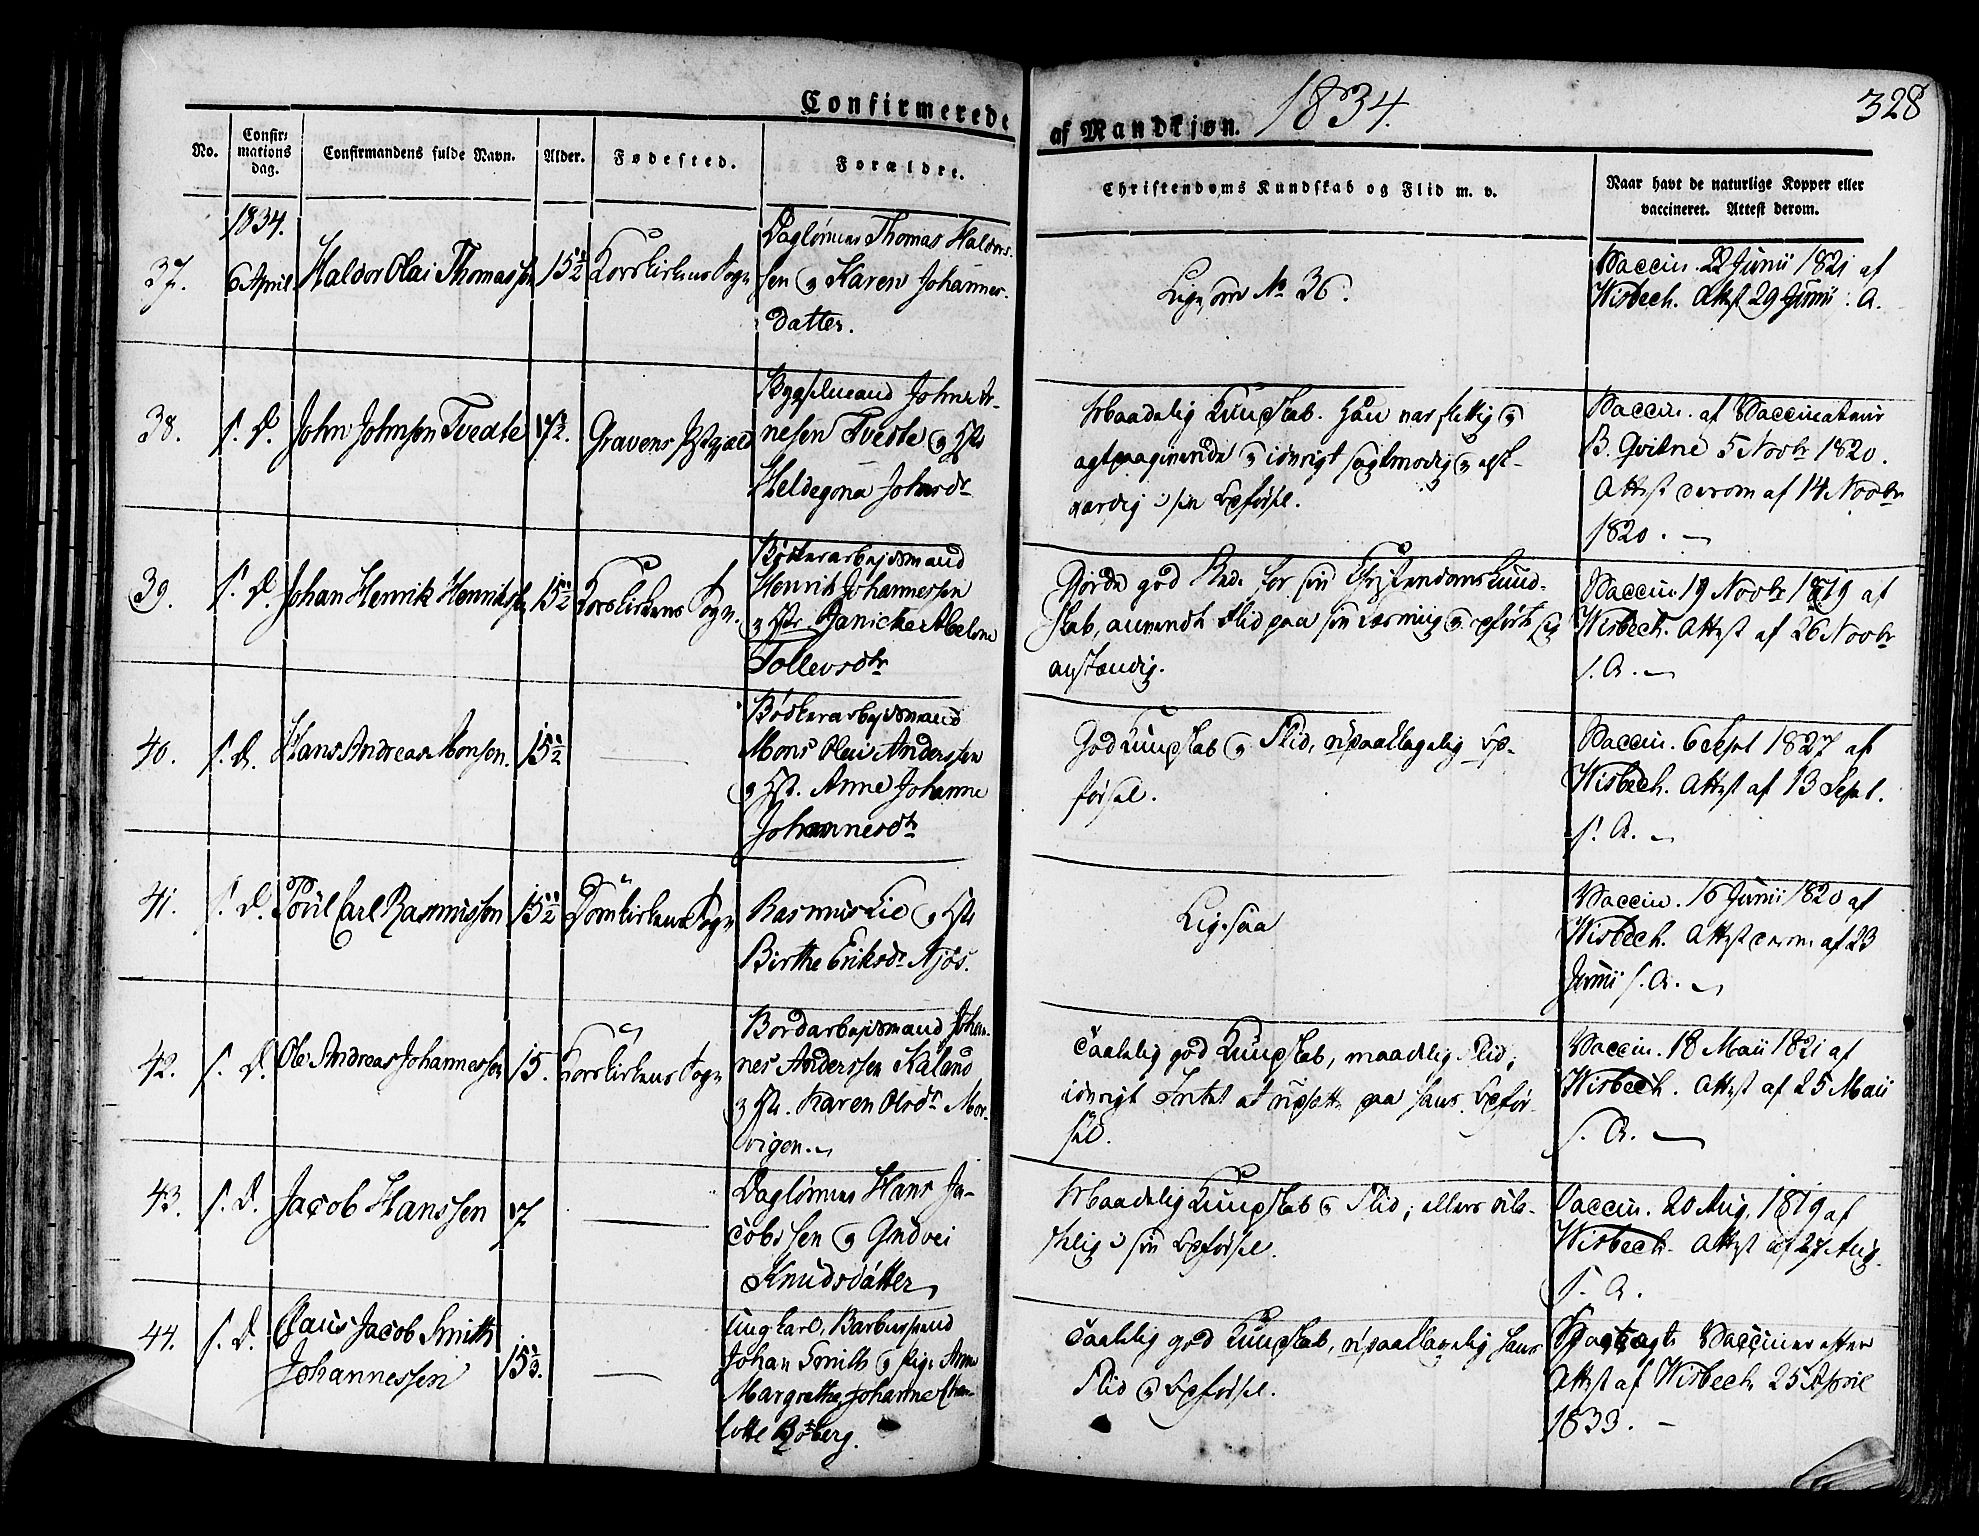 Confirmerede af Mandkjøn. 1834. 328
No.
Confir-
mations
dag.
Confirmandens fulde Navn.
Alder.
Fødested.
Forældre.
Christendoms Kundskab og Flid m. v.
Naar havt de naturlige Kopper eller
vaccineret. Attest derom.
1834.
37. 6 April Haldor Olai Thomassen 15½ Korskirkens Sogn
Daglønner Thomas Haldor-
sen og Karen Johannes-
datter.
Ligesom No 36.
Vaccin. 22 Junii 1821 af
Wisbech. Attest 29 Junii s. A.
38. s. D. John Johnsen Tvedte 17½. Gravens Pstgjæld
Bygselmand John Ar-
nesen Tvedte og Hst
Heldegona Johnsdr
Maadelig Kundskab. Han var flittig og
agtpaagivende og iøvrigt sagtmodig og agt-
værdig i sin Opførsel.
Vaccin. af Vaccinateur
B. Qvitne 5 Novbr 1820.
Attest derom af 14 Novbr
1820.
39. s. D. Johan Henrik Henriksen 15½ Korskirkens Sogn.
Bødkerarbejdsmand
Henrik Johannessen
og Hst. Janicke Abelone
Tollevsdtr
Gjorde god Rede for sin Christendomskund-
skab, anvendte Flid paa sin Lærning og opførte sig
anstændig.
Vaccin. 19 Novbr 1819 af
Wisbech. Attest af 26 Novbr
s. A.
40. s. D. Hans Andreas Monsen. 15½
Bødkerarbejdsmand
Mons Olai Anderssen
og Hst. Anne Johanne
Johannesdtr
God Kundskab og Flid, upaaklagelig Op-
førsel.
Vaccin. 6 Sept 1827 af
Wisbech. Attest af 13 Sept.
s. A.
41. s. D. Poul Carl Rasmussen 15½ Domkirkens Sogn
Rasmus Lie og Hst
Birthe Eriksdr Njøs.
Ligesaa
Vaccin. 16 Junii 1820 af
Wisbech. Attest derom af 23
Junii s. A.
42. s. D. Ole Andreas Johannessen 15. Korskirkens Sogn
Bordarbejdsmand Johan-
nes Anderssen Kaland
og Hst. Karen Olsdr Mor-
vigen.
Taalelig god Kundskab, maadelig Flid;
iøvrigt Intet at udsætte paa hans Opfør-
sel.
Vaccin. 18 Maii 1821 af
Wisbech. Attest af 25 Maii
s. A.
43. s. D. Jacob Hanssen 17
Daglønner Hans Ja-
cobssen og Gudvei
Knudsdatter
Maadelig Kundskab og Flid; ellers skik-
kelig i sin Opførsel.
Vaccin. 20 Aug. 1819 af
Wisbech. Attest af 27 Aug.
s. A.
44. s. D. Claus Jacob Smith
Johannessen 15⅓.
Ungkarl, Barbersvend
Johan Smith og Pige Anne
Margrethe Johanne Char-
lotte Boberg.
Taalelig god Kundskab, upaaklagelig hans
Flid og Opførsel.
Vacciner efter
Attest af Wisbech 25 April
1833.